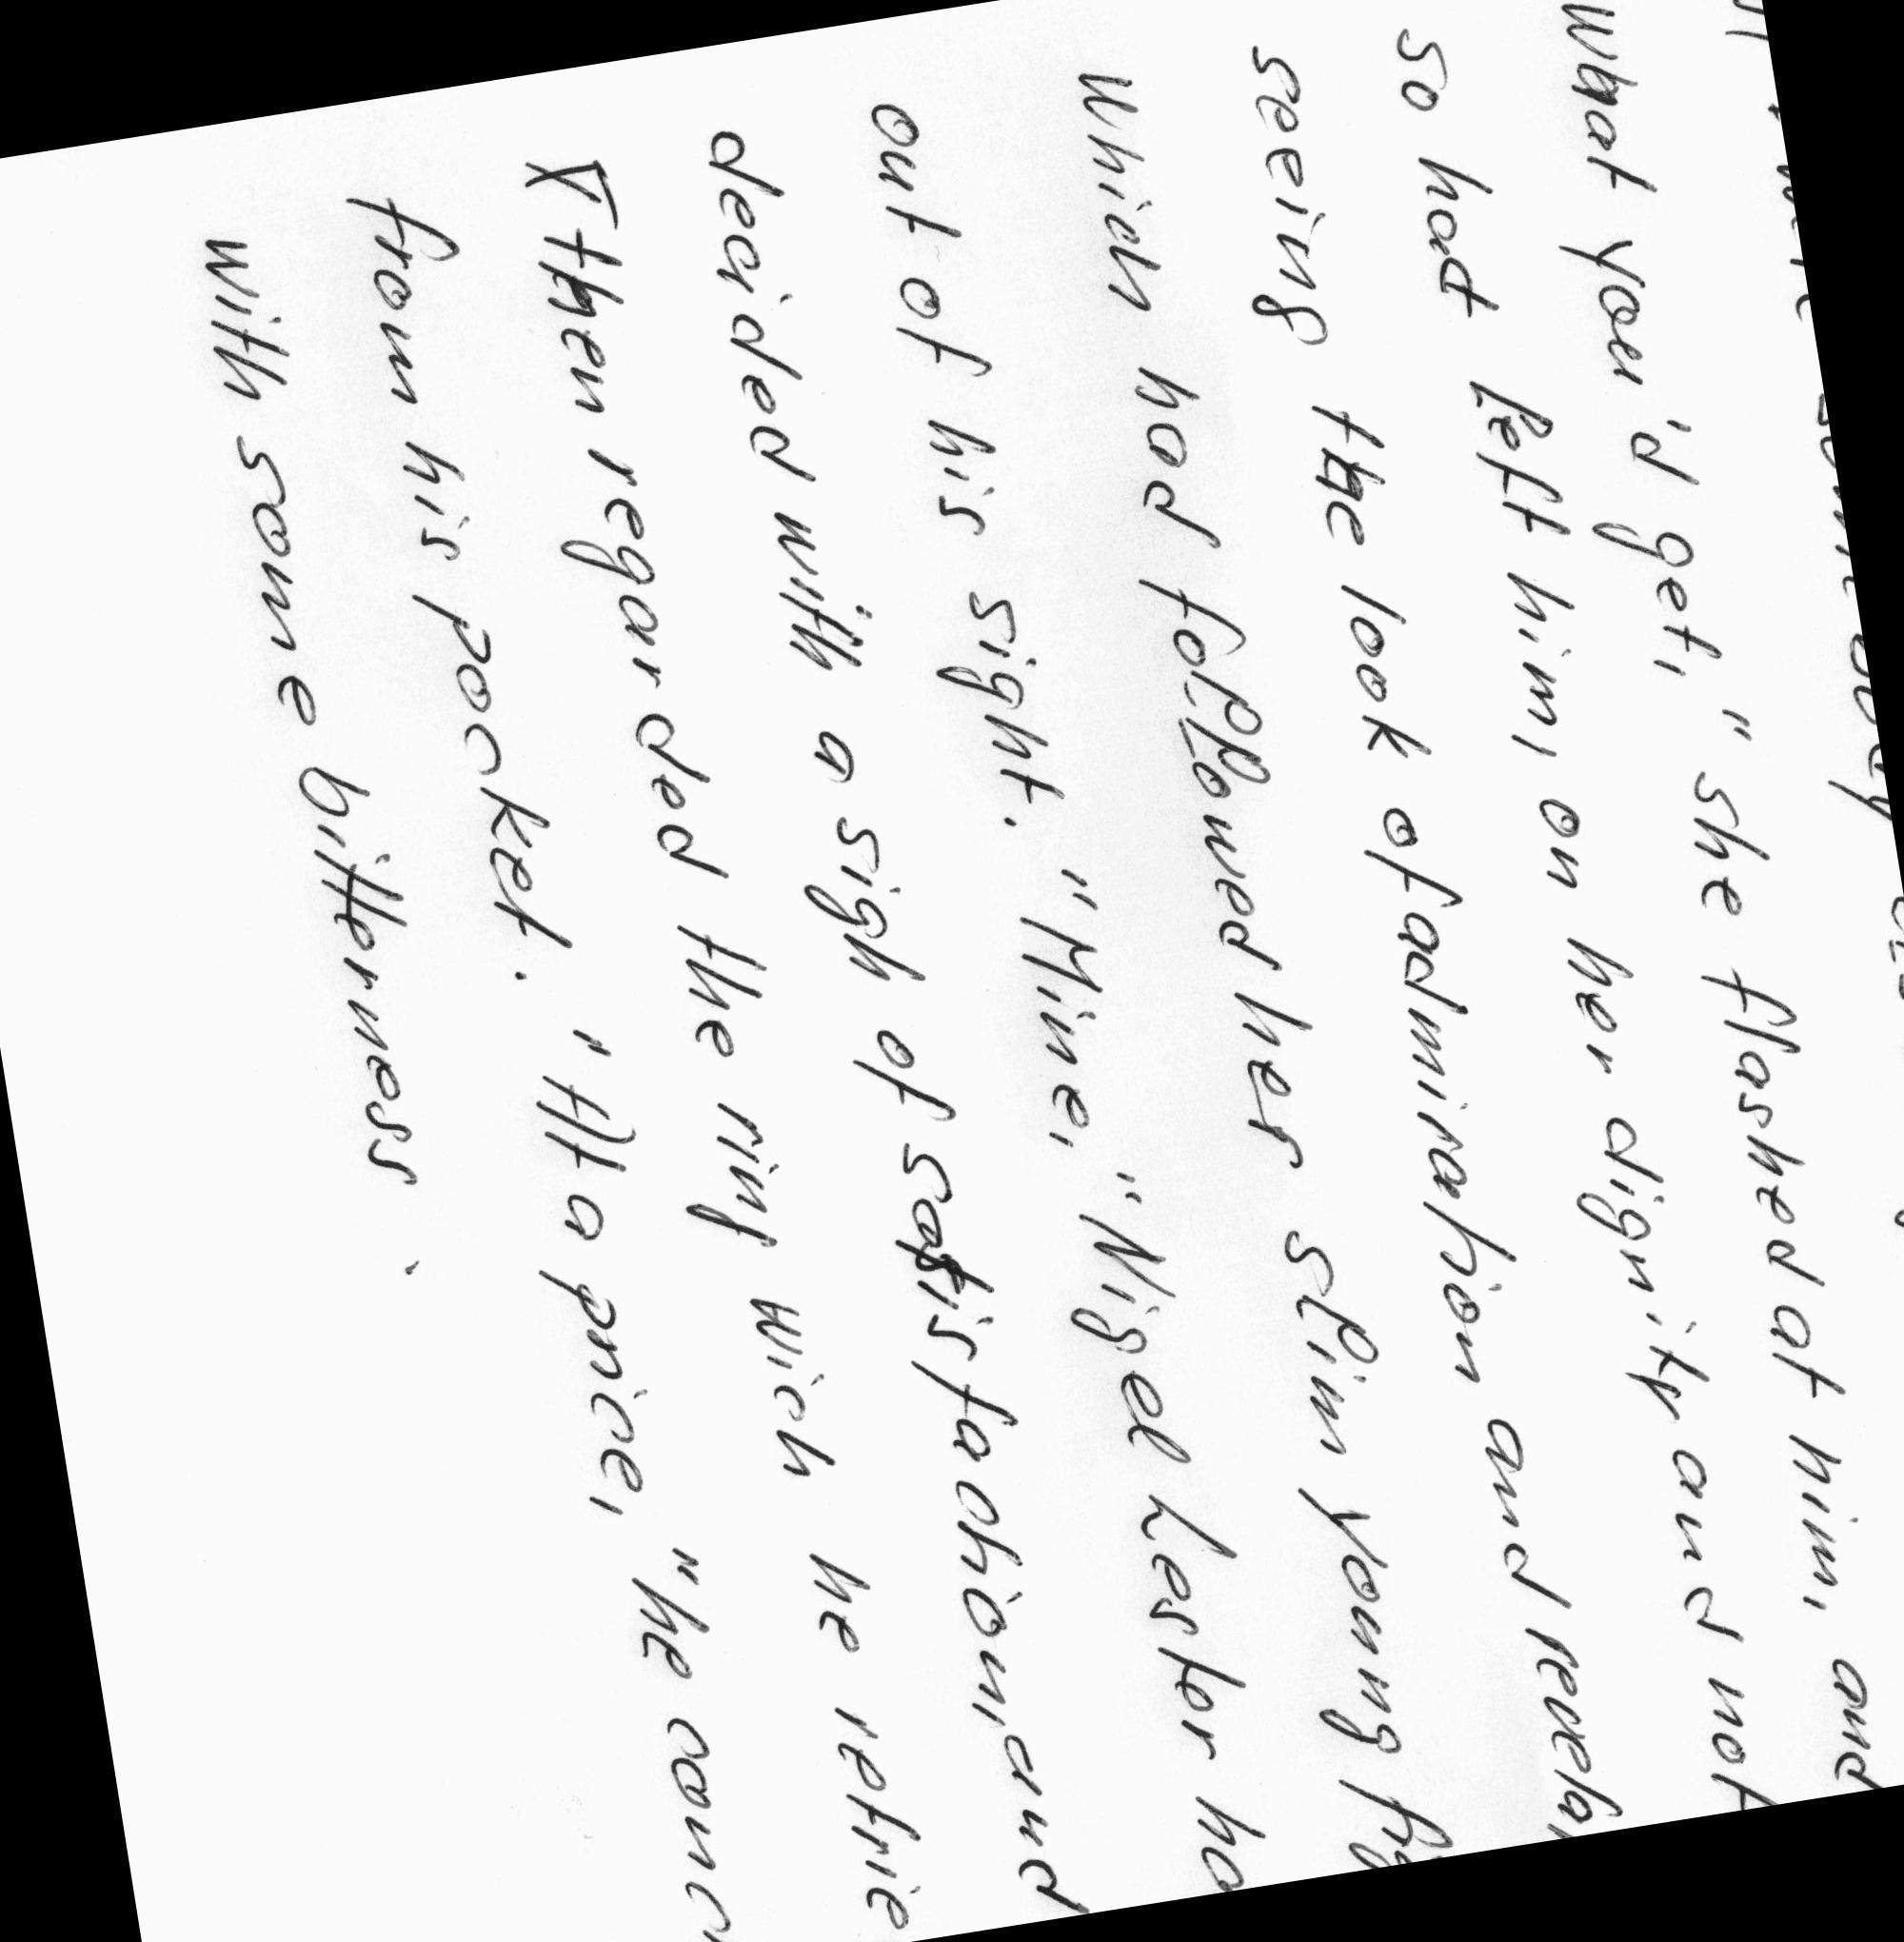 what you'd get," she flashed at him, and
so hat left him, on her dignity and not
seeing the look of admiration and
which had followed her slim young
out of his sight. "Mine," Nigel Lester
decided with a sigh of satisfaction, and
Then regarded the ring wich he
from his pocket. "At a price," he
with some bitterness.